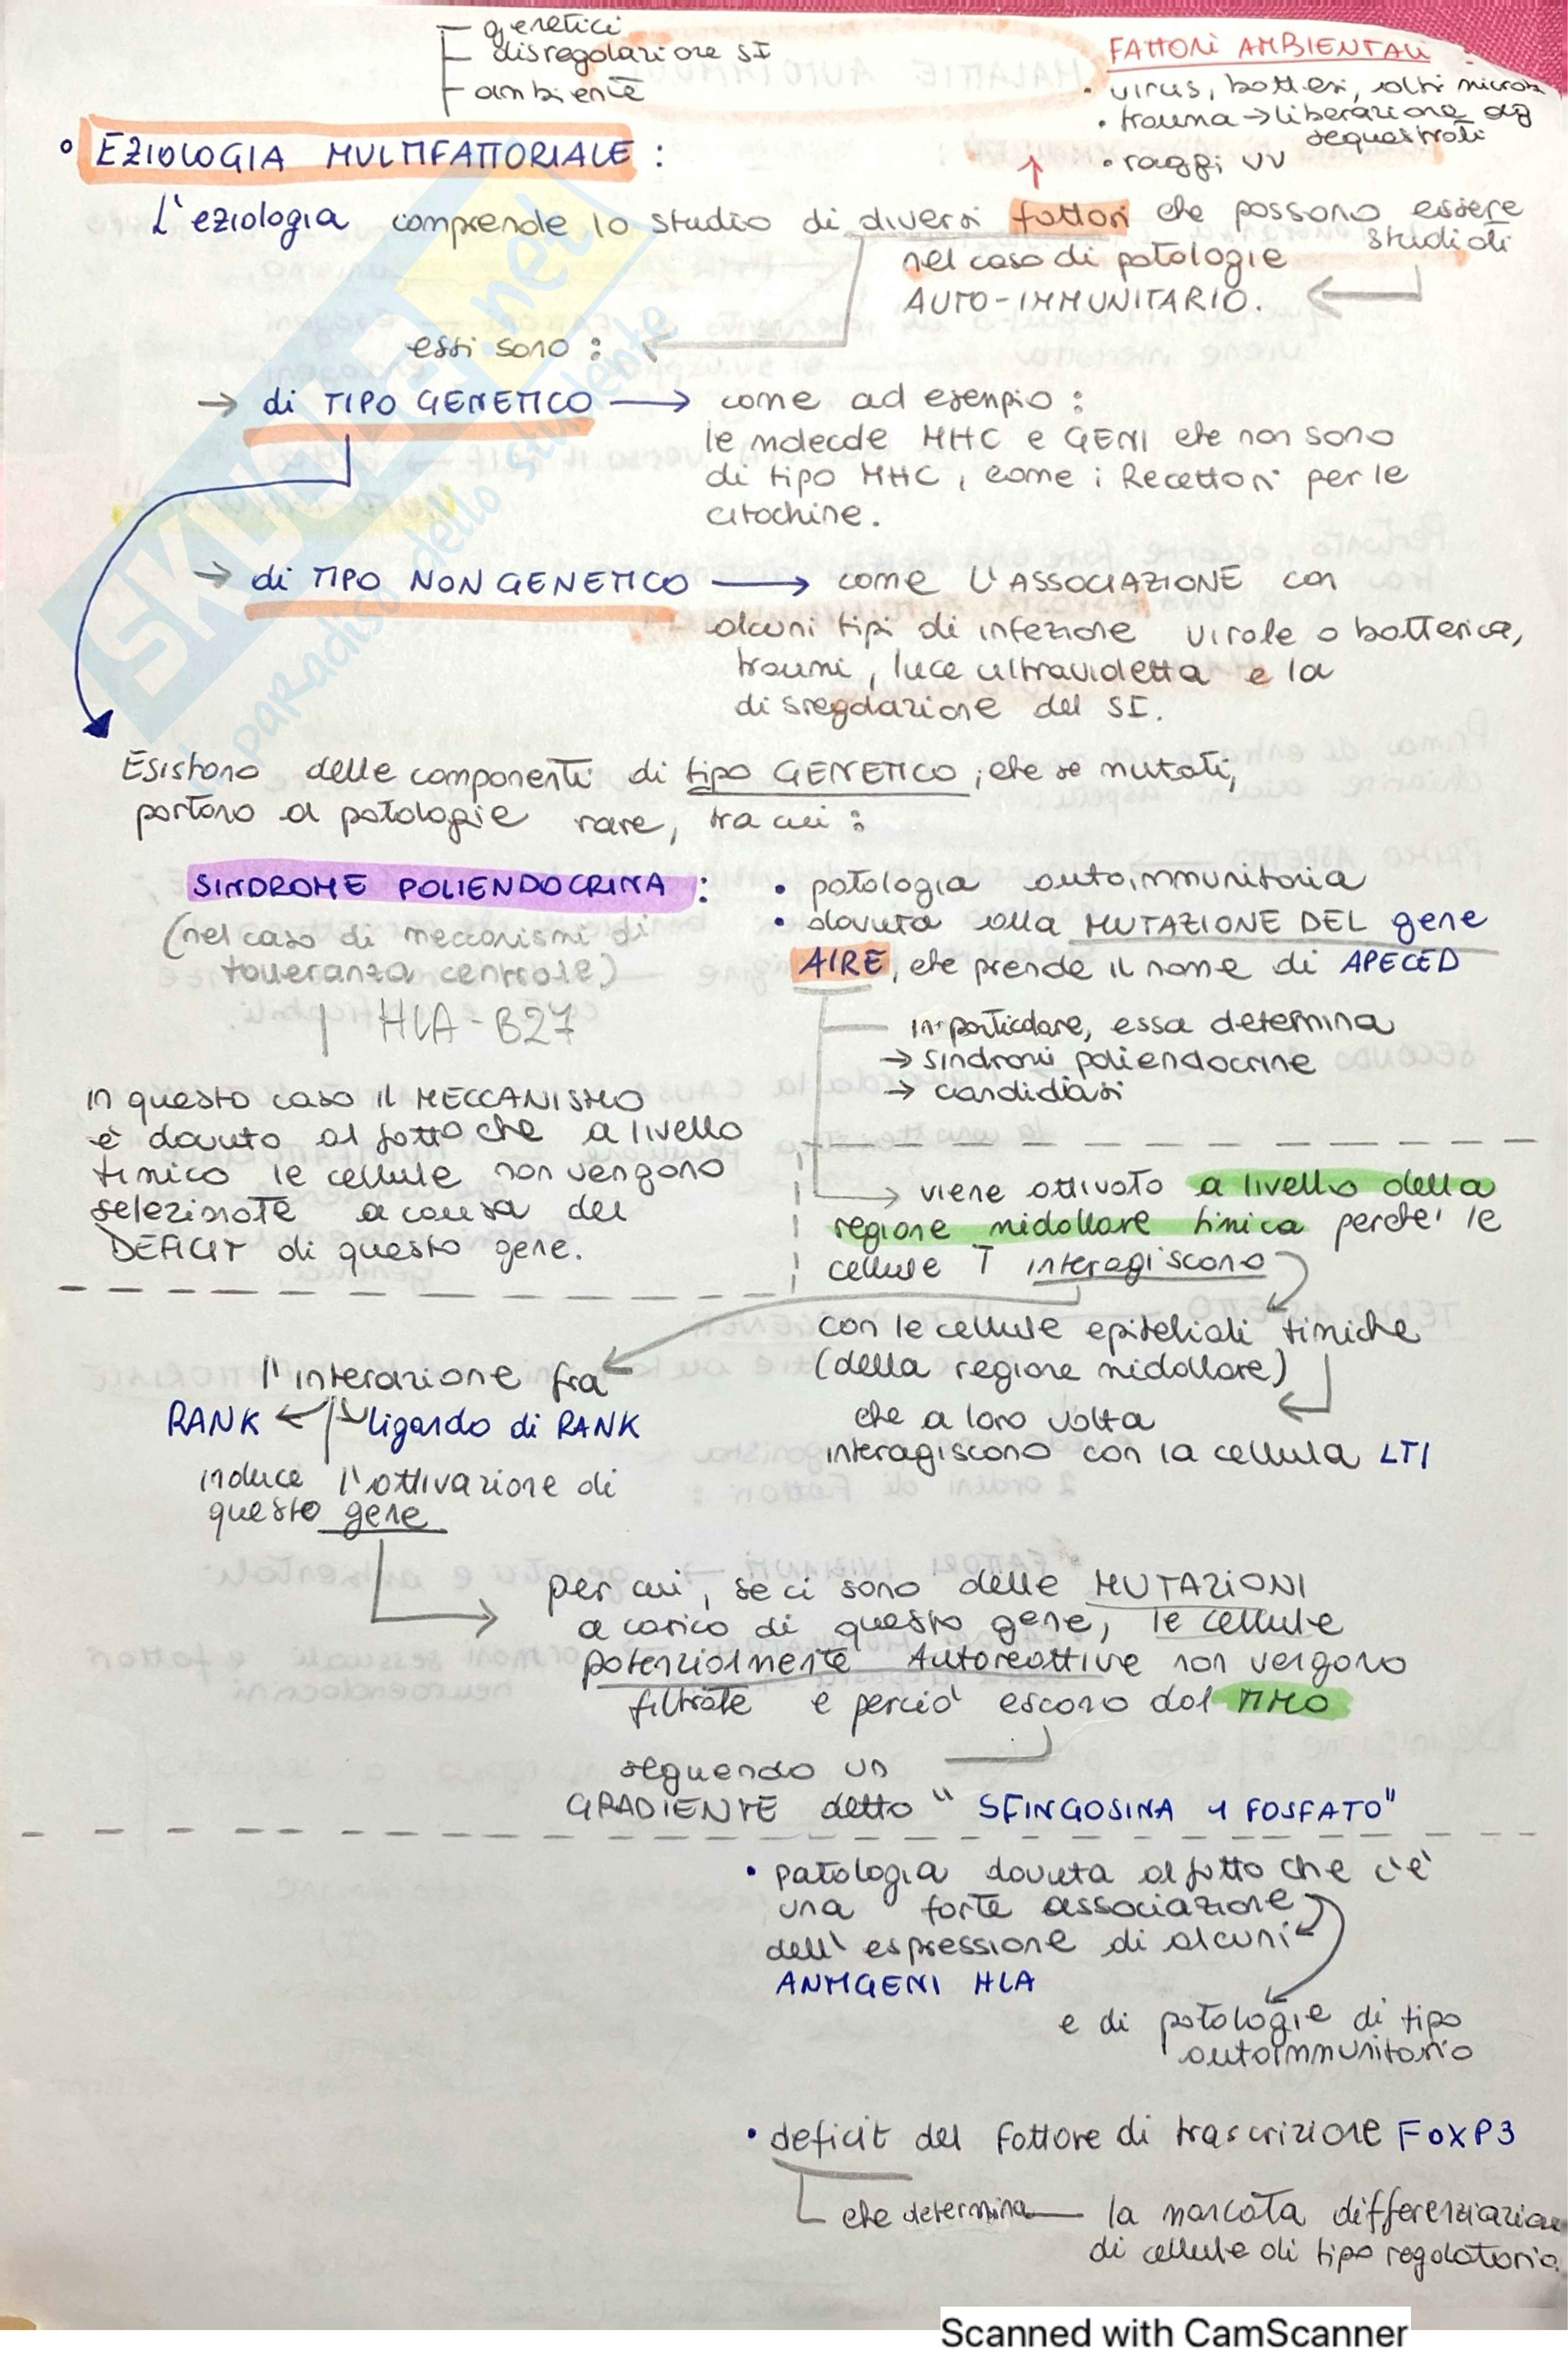 genetici
disregolazione SI
ambiente
FATTORI AMBIENTALI
• virus, batteri, altri microb
• trauma → liberazione ag
sequestrati
• raggi UV
° EZIOLOGIA MULTIFATTORIALE :
L'eziologia comprende lo studio di diversi fattori che possono essere
studiati
nel caso di patologie
AUTO-IMMUNITARIO.
essi sono :
→ di TIPO GENETICO → come ad esempio :
le molecole MHC e GENI che non sono
di tipo MHC, come i Recettori per le
citochine.
→ di TIPO NON GENETICO → come L'ASSOCIAZIONE con
alcuni tipi di infezione virale o batterica,
traumi, luce ultravioletta e la
disregolazione del SI.
Esistono delle componenti di tipo GENETICO, che se mutati,
portano a patologie rare, tra cui :
SINDROME POLIENDOCRINA :
(nel caso di meccanismi di
tolleranza centrale)
| HLA-B27
• patologia autoimmunitaria
• dovuta alla MUTAZIONE DEL gene
AIRE, che prende il nome di APECED
in particolare, essa determina
→ sindromi poliendocrine
→ candidiasi
in questo caso il MECCANISMO
è dovuto al fatto che a livello
timico le cellule non vengono
selezionate a causa del
DEFICIT di questo gene.
→ viene attivato a livello della
regione midollare timica perche' le
cellule T interagiscono
con le cellule epiteliali timiche
(della regione midollare)
che a loro volta
interagiscono con la cellula LTI
l'interazione fra
RANK ligando di RANK
induce l'attivazione di
questo gene
per cui, se ci sono delle MUTAZIONI
a carico di questo gene, le cellule
potenzialmente Autoreattive non vengono
filtrate e perciò escono dal TIMO
seguendo un
GRADIENTE detto "SFINGOSINA 1 FOSFATO"
• patologia dovuta al fatto che c'è
una forte associazione
dell'espressione di alcuni
ANTIGENI HLA
e di patologie di tipo
autoimmunitario
• deficit del fattore di trascrizione FOXP3
che determina la marcata differenziazion
di cellule di tipo regolatorio.
SKUOLA.net
il paradiso dello studente
Scanned with CamScanner